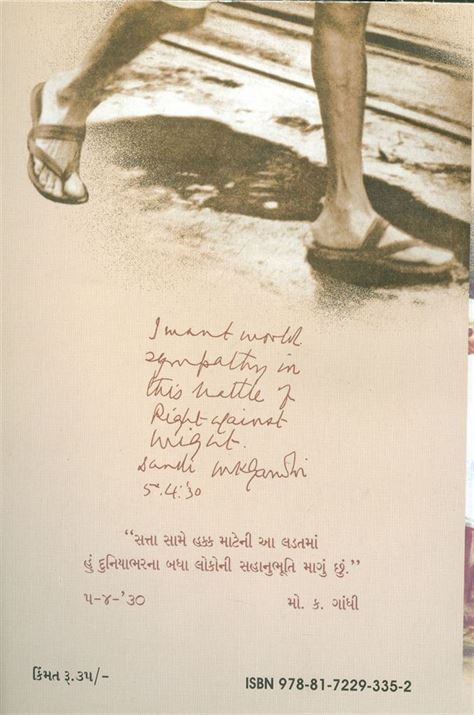 I want world
sympathy in
this battle of
Right against
might.
Dandi MKGandhi
5.4.'30
“સત્તા સામે હક્ક માટેની આ લડતમાં
હું દુનિયાભરના બધા લોકોની સહાનુભૂતિ માગું છું.”
૫-૪-'૩૦ મો. ક. ગાંધી
કિંમત રૂ.૩૫/-
ISBN 978-81-7229-335-2